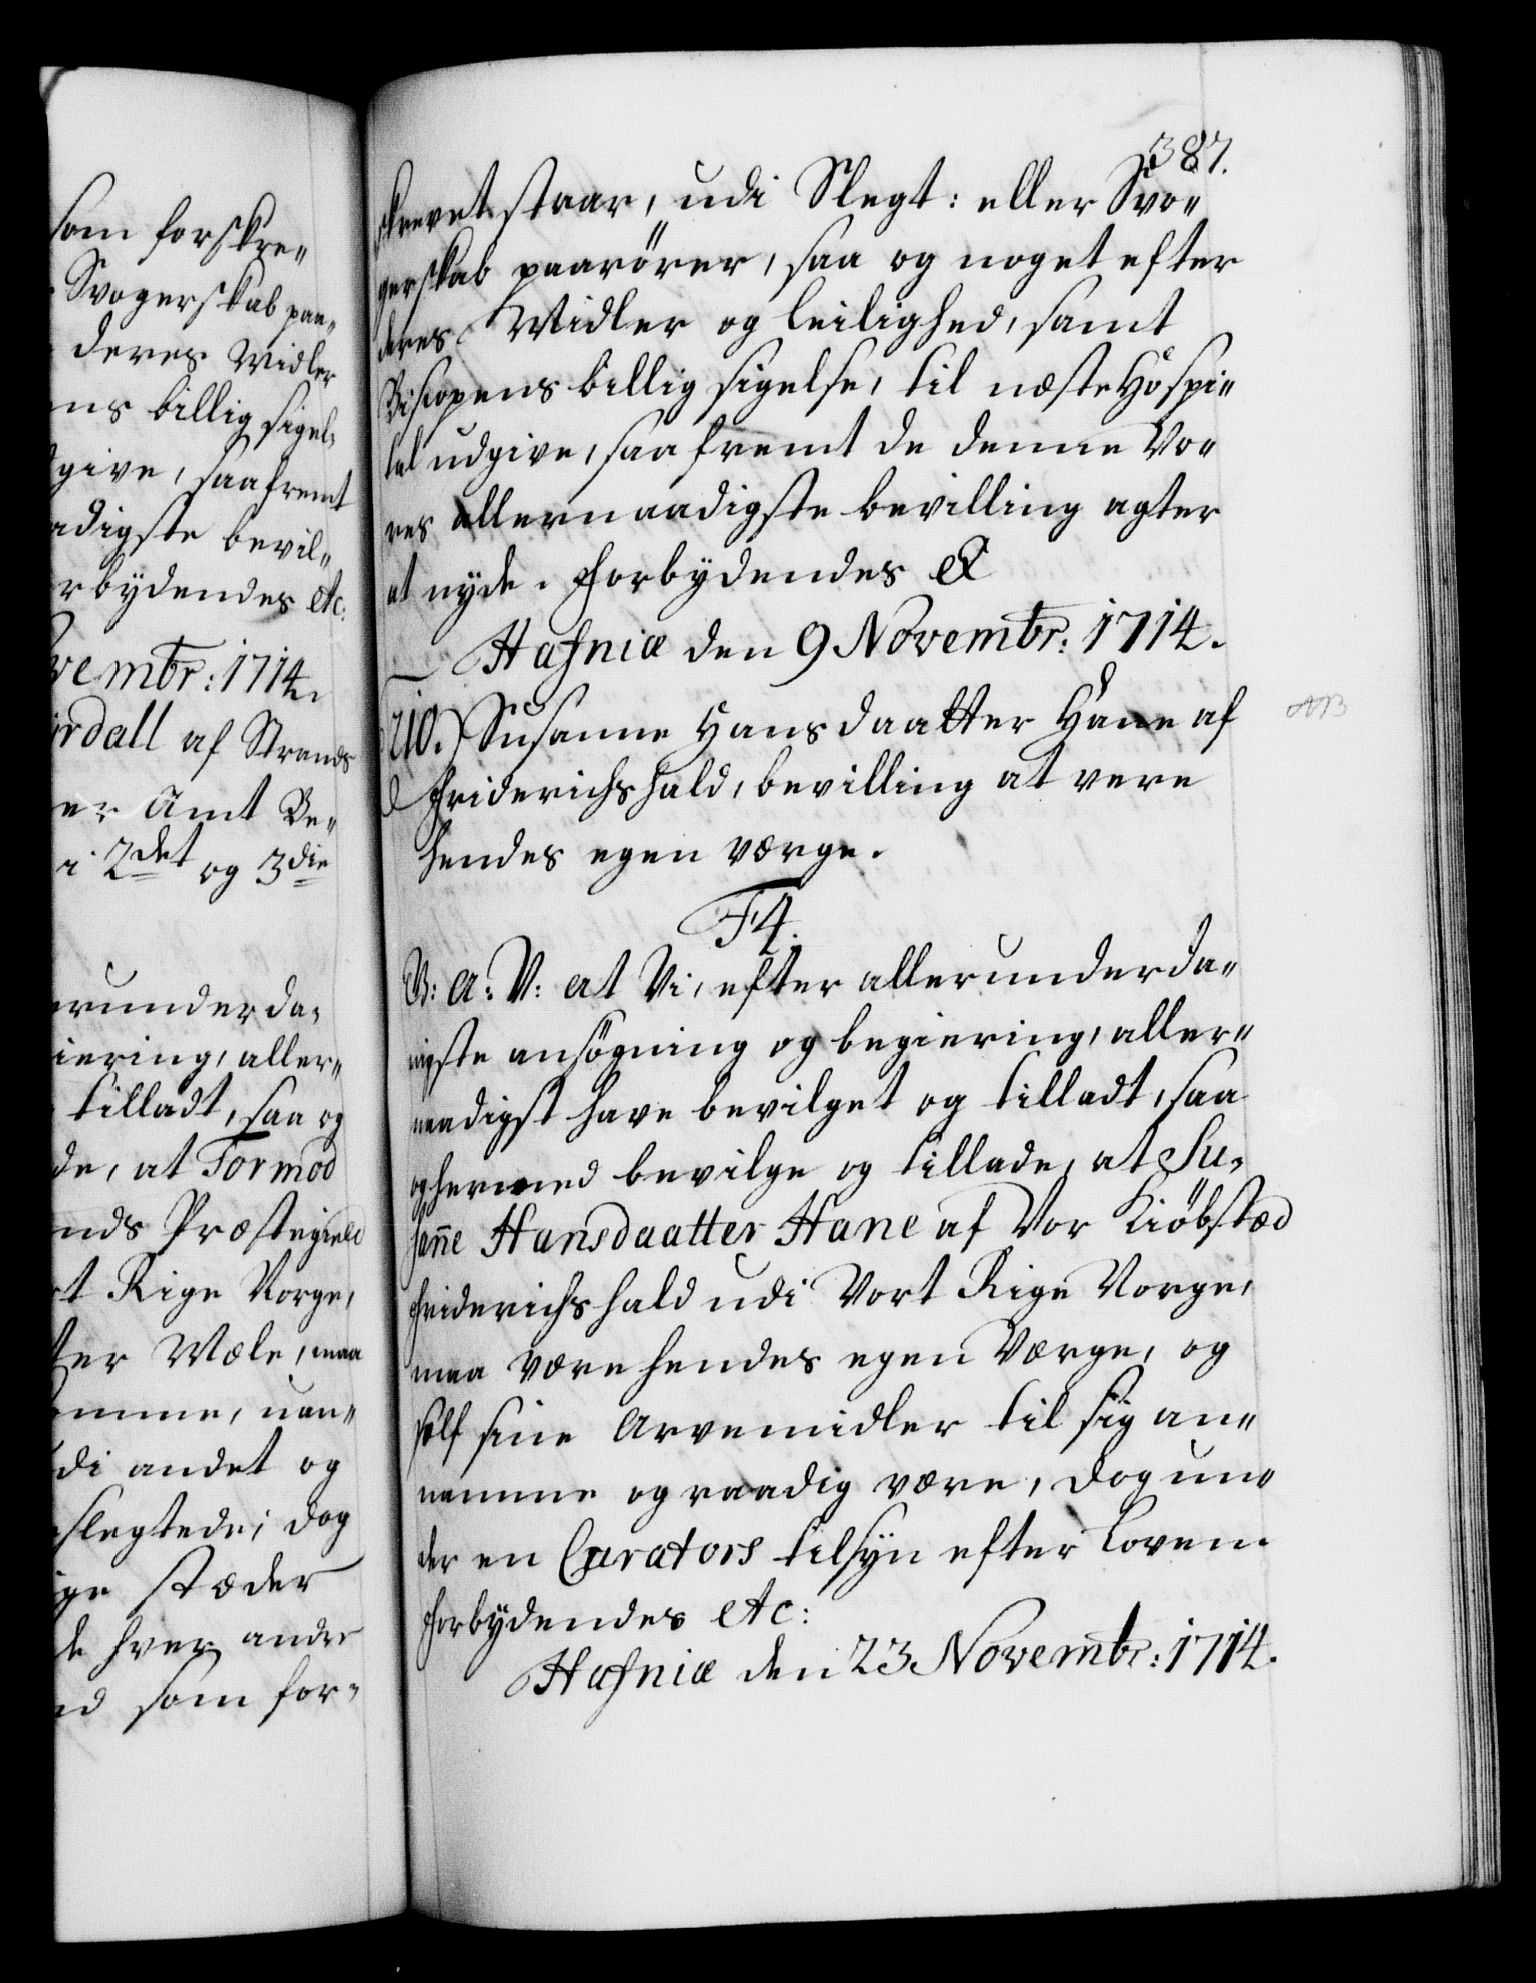 som forskre„
Svogerskab paa„
deres Midler
ns billig sigel„
give, saafremt
adigste bevil„
rbÿdendes etc:
vembr: 1714.
rdall af Strands
er Amt Be„
i 2det og 3die
erunderda„
iering, aller„
tilladt, saa og
de, at Tormod
nds Præstegield
rt Rige Norge,
ter Mæle, maa
omme, uan„
di andet og
slegtede; dog
ige stæder
de hver andre
ed som for„
387.
skrevet staar, udi Slegt: eller Svo„
gerskab paarörer, saa og noget efter
deres Midler og leilighed, samt
Bischopens billig sigelse, til næste Hospi„
tal udgive, saafremt de denne Vo„
res allernaadigste bevilling agter
at nyde. Forbÿdendes etc
Hafniæ den 9 Novembr: 1714.
210.) Susanne Hansdaatter Hane af
Friderichshald, bevilling at vere
hendes egen værge.
F4.
V: A: V: at Vi, efter allerunderda„
nigste ansögning og begiering, aller„
naadigst have bevilget og tilladt, saa
og hermed bevilge og tillade, at Su„
sanne Hansdaatter Hane af Vor Kiöbstæd
Friderichshald udi Vort Rige Norge,
maa være hendes egen Værge, og
self sine Arvemidler til sig an„
namme og raadig være, dog un„
der en Curators tilsÿn efter Loven.
Forbÿdendes etc:
Hafniæ den 23 Novembr: 1714.
AB